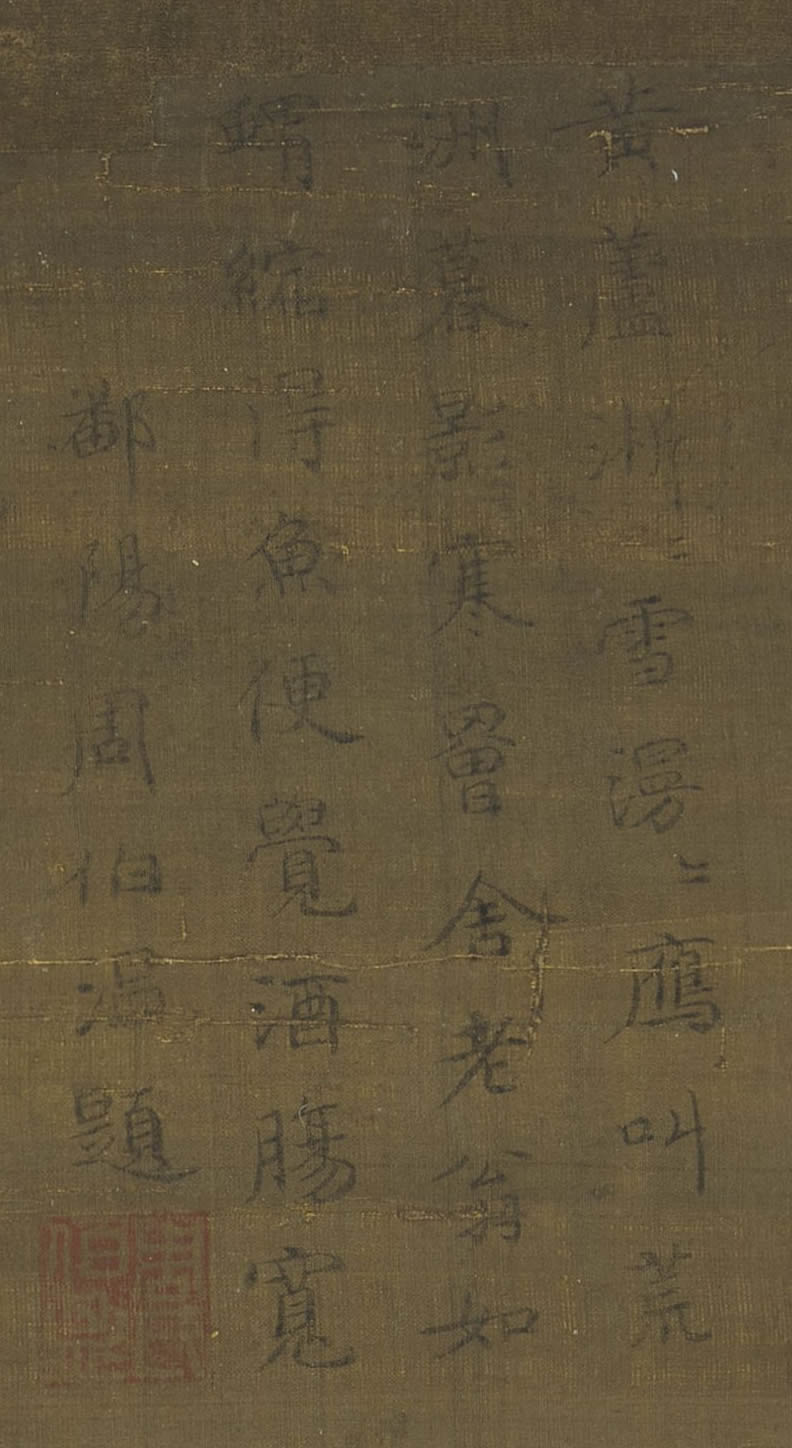 黃蘆淅〻雪漫〻鴈叫荒
洲暮影寒罾舍老翁如
蝟縮得魚便覺酒腸寬
鄱陽周伯溫題